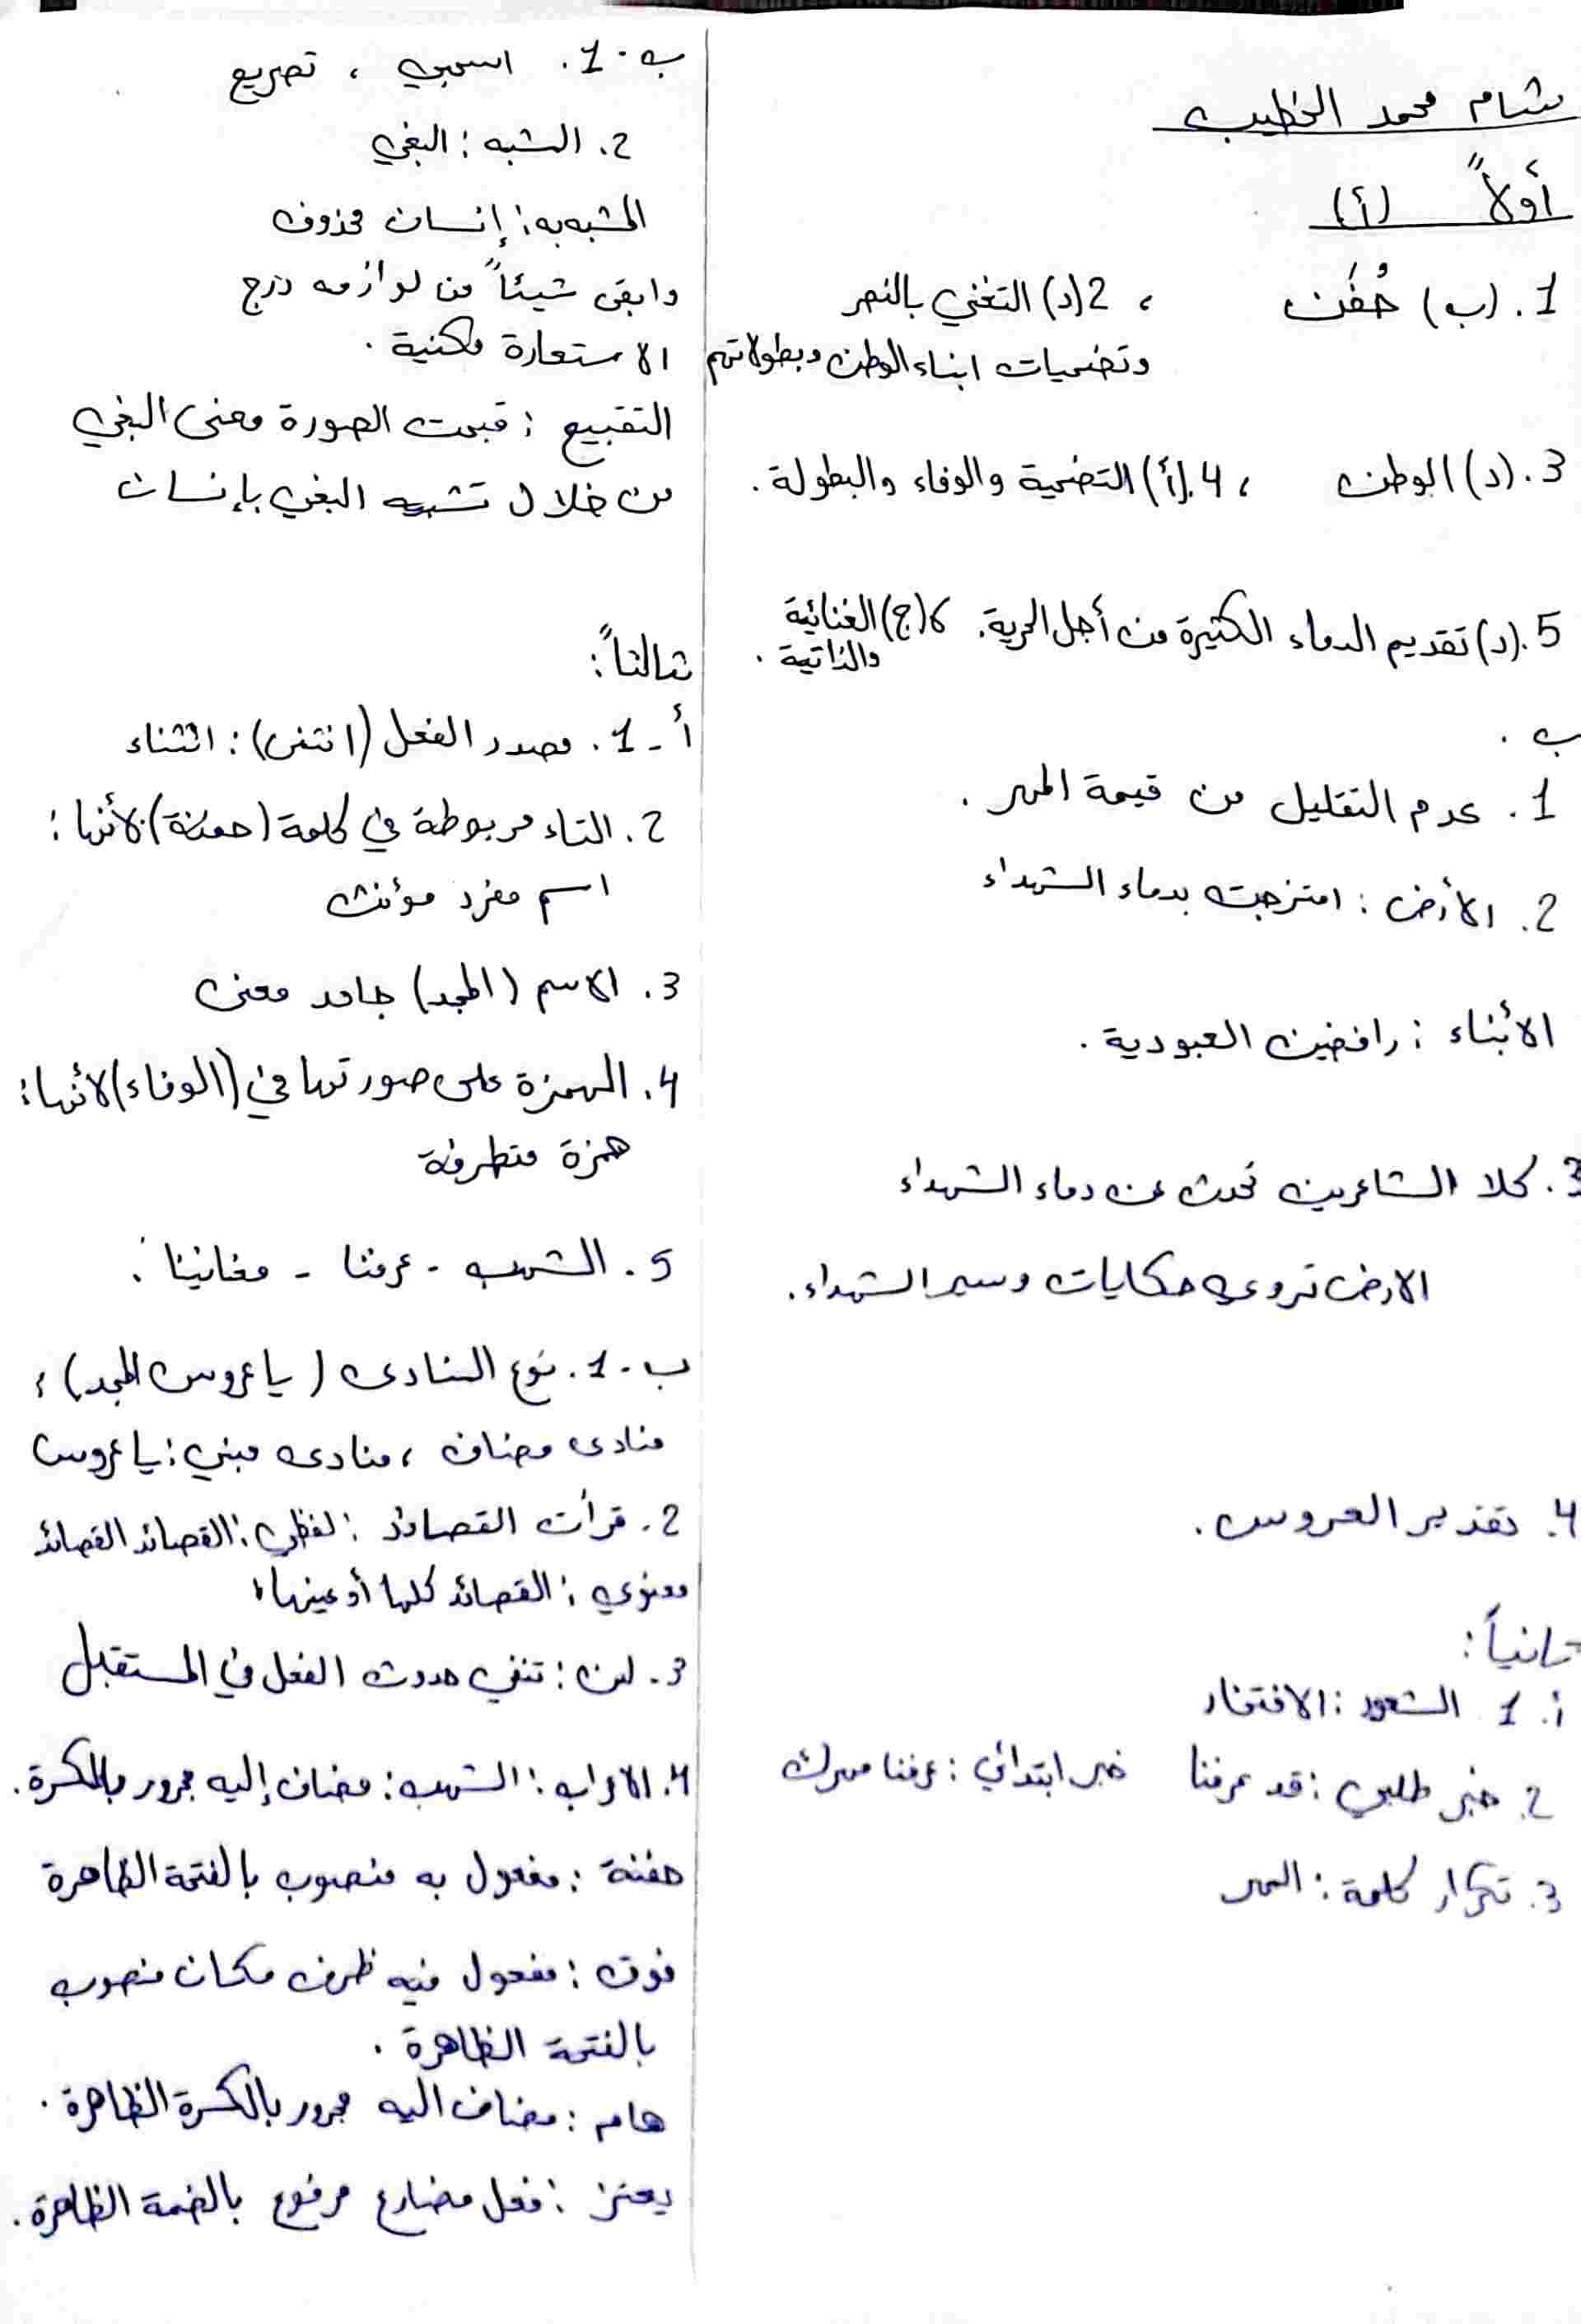 شام محمد الخطيب
أولاً (أ)
1. (ب) حُفَن ، 2(د) التغني بالنصر
وتضحيات ابناء الوطن وبطولاتهم
3. (د) الوطن ، 4. (أ) التضحية والوفاء والبطولة.
5. (د) تقديم الدماء الكثيرة من أجل الحرية. 6(ج) الغنائية
والذاتية.
ب.
1. عدم التقليل من قيمة المهر.
2. الأرض: امتزجت بدماء الشهداء
الأبناء: رافضين العبودية.
3. كلا الشاعرين تحدث عن دماء الشهداء
الارض تروي حكايات وسير الشهداء.
4. تقدير العروس.
ثانياً:
أ. 1 الشعور: الافتخار
2. خبر طلبي: قد عرفنا خبر ابتدائي: عرفنا مهرك
3. تكرار كلمة: المهر
ب. 1. اسحبي ، تصريع
2. الشبه: البغي
المشبه به: إنسان محذوف
وابقى شيئاً من لوازمه درج
الاستعارة مكنية.
التقبيح: قبحت الصورة معنى البغي
من خلال تشبيه البغي بإنسان
ثالثاً:
أ - 1. مصدر الفعل (انتنى): انثناء
2. التاء مربوطة في كلمة (حفنة) لأنها:
اسم مفرد مؤنث
3. الاسم (المجد) جامد معنى
4. الهمزة على صورتها في (الوفاء) لأنها:
همزة متطرفة
5. الشهب - عرفنا - مغانينا.
ب - 1. نوع المنادى (يا عروس المجد):
منادى مضاف ، منادى مبني: يا عروس
2. قرأت القصائد: لفظي: القصائد القصائد
معنوي: القصائد كلها أو عينها
3. لن: تنفي حدوث الفعل في المستقبل
4. الاعراب: الشهب: مضاف إليه مجرور بالكسرة.
حفنة: مفعول به منصوب بالفتحة الظاهرة
فوق: مفعول فيه ظرف مكان منصوب
بالفتحة الظاهرة.
هام: مضاف اليه مجرور بالكسرة الظاهرة.
يعتز: فعل مضارع مرفوع بالضمة الظاهرة.